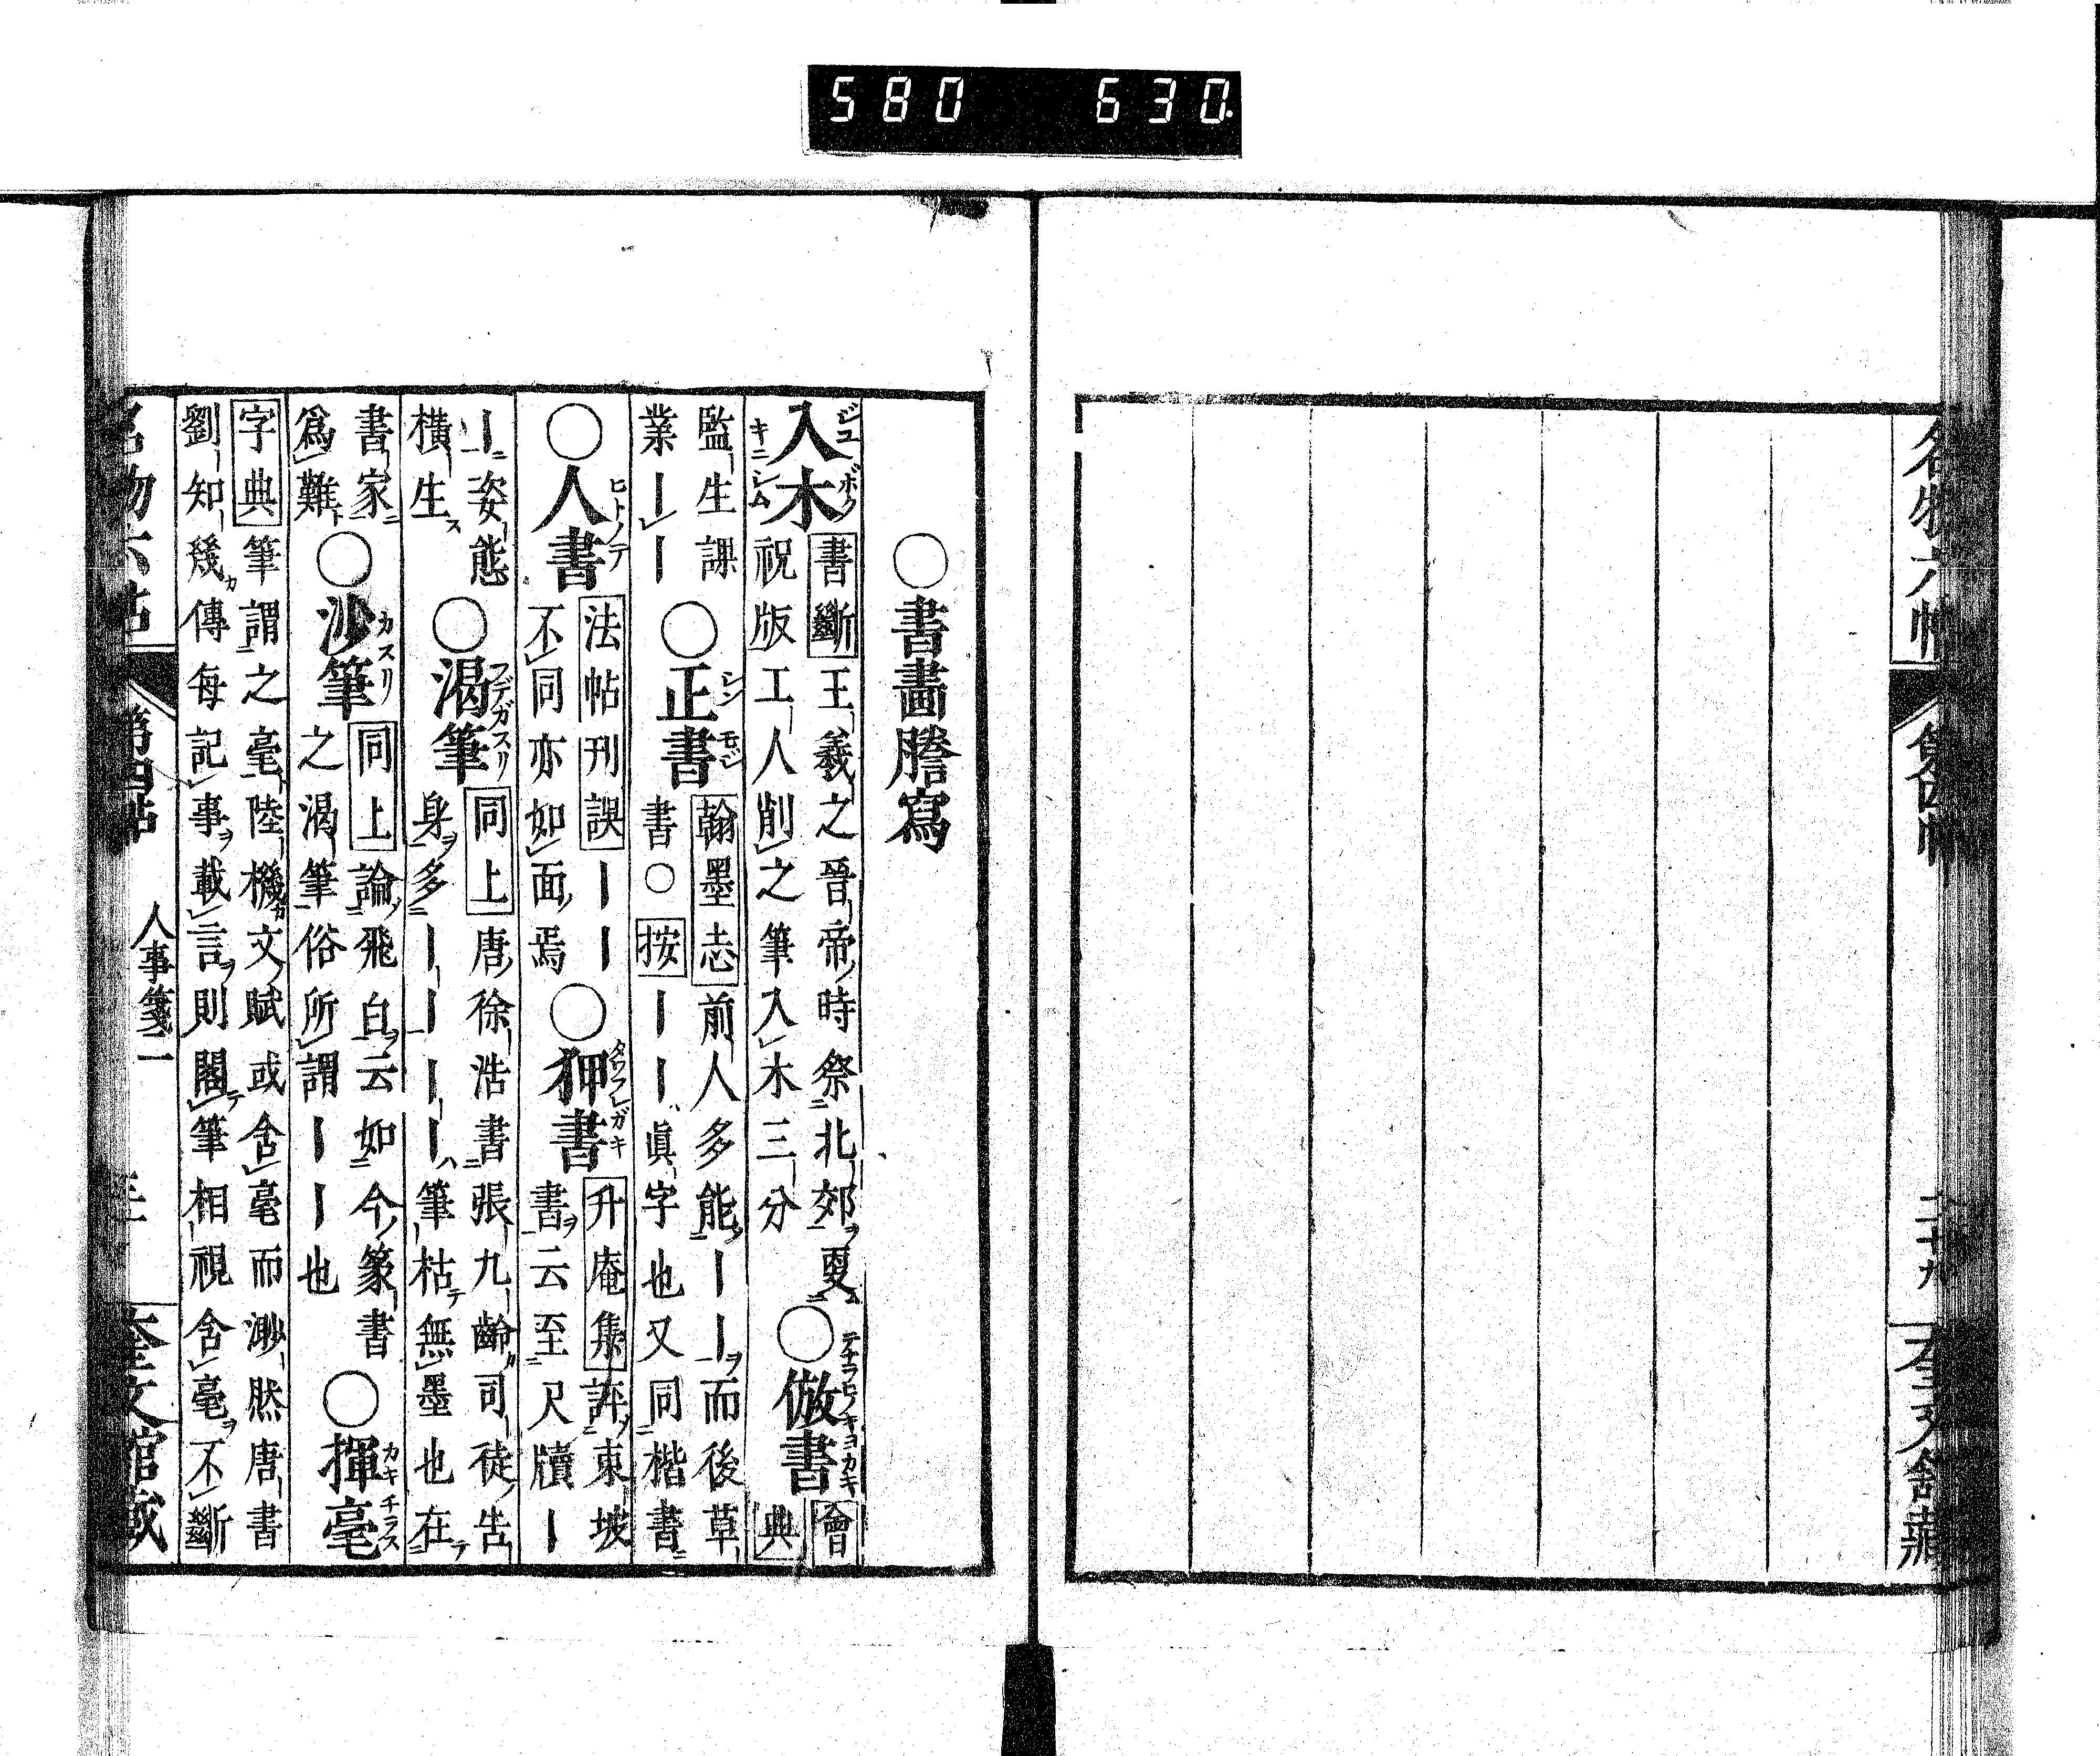 580 630.
名物六帖 第四帖 奎文舘藏
○書畫謄寫
入木 ジユボク キニシム 書斷 王羲之晉帝時祭北郊更祝版工人削之筆入木三分 ○倣書 テナラヒノキヨカキ 會典
監生課業丨丨 ○正書 シンモジ 翰墨志 前人多能丨丨而後草書○按丨丨眞字也又同楷書
○人書 ヒトノテ 法帖刊誤 丨丨不同亦如面焉 ○狎書 タワフレガキ 升庵集 評東坡書云至尺牘丨
丨姿態横生 ○渇筆 フデガスリ 同上 唐徐浩書張九齡司徒告身多丨丨丨丨筆枯無墨也在
書家爲難 ○沙筆 カスリ 同上 論飛白云如今篆書之渇筆俗所謂丨丨也 ○揮毫 カキチラス
字典 筆謂之毫陸機文賦或含毫而渺然唐書劉知幾傳每記事載言則閣筆相視含毫不斷
名物六帖 第四帖 人事箋二 奎文館藏